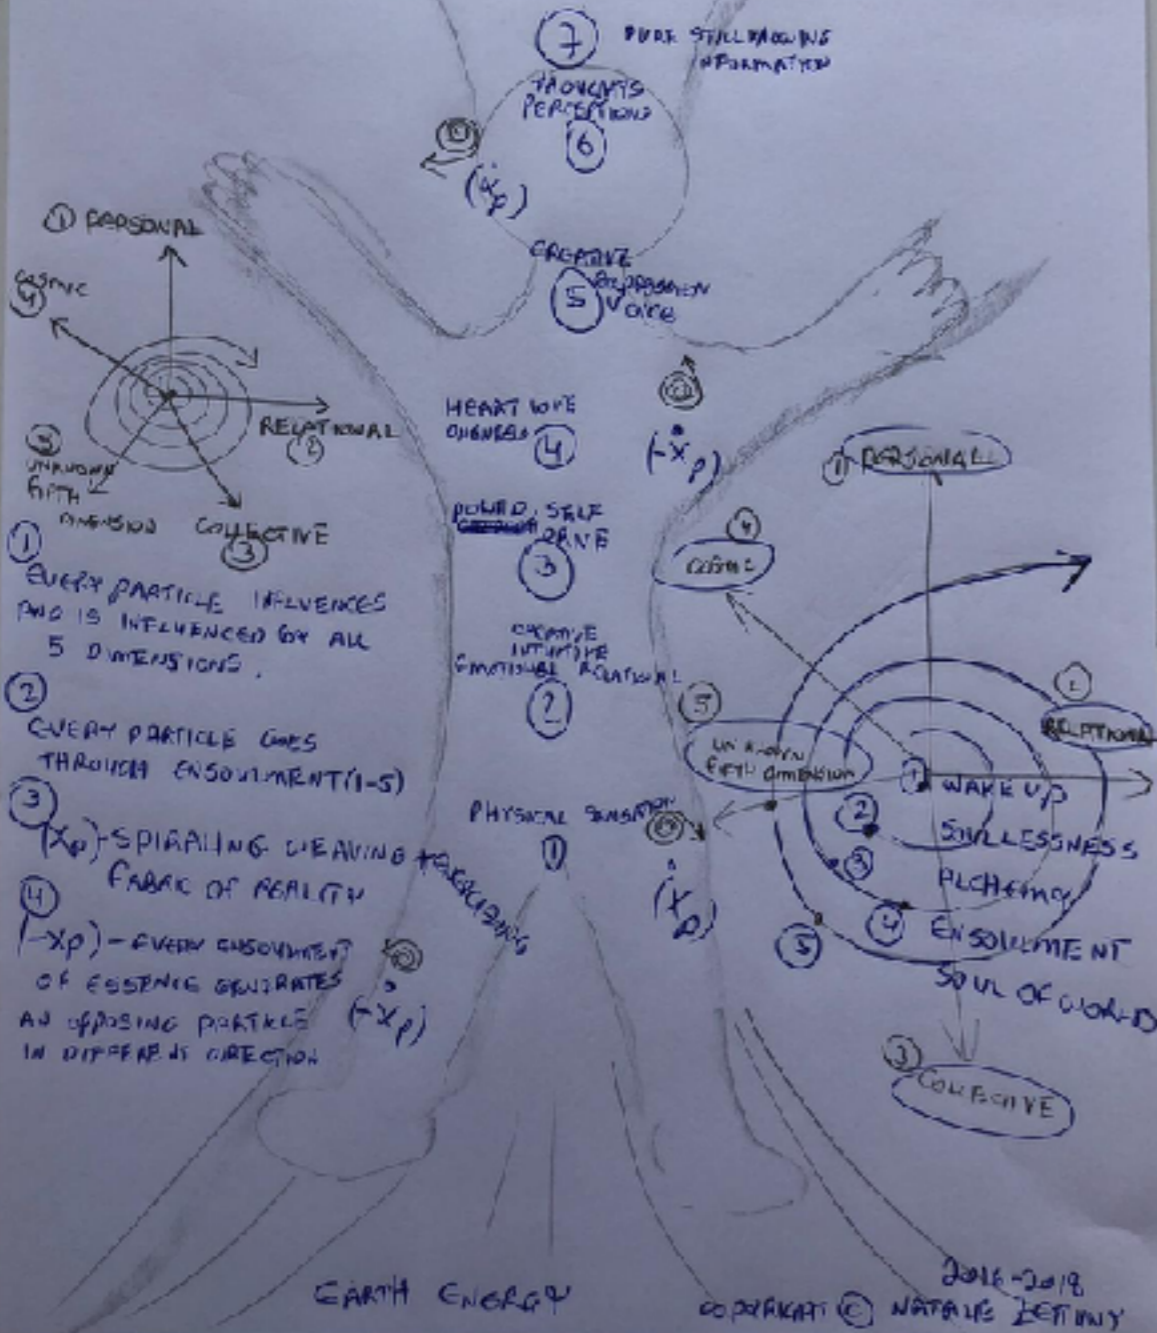 7
THOUGHTS
PERCEPTIONS
6
(ẋp)
1 PERSONAL
COSMIC
4
RELATIONAL
2
5
UNKNOWN
FIFTH
DIMENSION
COLLECTIVE
3
CREATIVE
EXPRESSION
5
VOICE
HEART LOVE
4
(-ẋp)
POWER, SELF
3
CREATIVE
INTUITIVE
EMOTIONAL RELATIONAL
2
PHYSICAL SENSATION
1
(ẋp)
(-ẋp)
1
EVERY PARTICLE INFLUENCES
AND IS INFLUENCED BY ALL
5 DIMENSIONS.
2
EVERY PARTICLE GOES
THROUGH ENSOULMENT (1-5)
3
(xp)-SPIRALING WEAVING +
FABRIC OF REALITY
4
(-xp)-EVERY ENSOULMENT
OF ESSENCE GENERATES
AN OPPOSING PARTICLE
IN DIFFERENT DIRECTION
1 PERSONAL
4
2
RELATIONAL
5
UNKNOWN
FIFTH DIMENSION
1 WAKE UP
2 SOULLESSNESS
3 ALCHEMY
4 ENSOULMENT
5 SOUL OF WORLD
3 COLLECTIVE
EARTH ENERGY
2016-2018
COPYRIGHT © NATALIE ZETTUNY